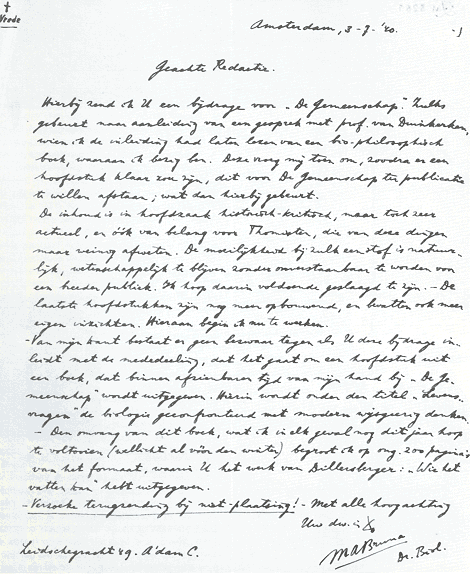 †
Vrede
Amsterdam, 3-7-'40.
Geachte Redactie.
Hierbij zend ik U een bijdrage voor „De Gemeenschap". Zulks
gebeurt naar aanleiding van een gesprek met prof. van Duinkerken,
wien ik de inleiding had laten lezen van een bio-philosophisch
boek, waaraan ik bezig ben. Deze vroeg mij toen om, zoodra er een
hoofdstuk klaar zou zijn, dit voor De Gemeenschap ter publicatie
te willen afstaan; wat dan hierbij gebeurt.
De inhoud is in hoofdzaak historisch-kritisch, maar toch zeer
actueel, en óók van belang voor Thomisten, die van deze dingen
maar weinig afweten. De moeilijkheid bij zulk een stof is natuur-
lijk, wetenschappelijk te blijven zonder onverstaanbaar te worden voor
een breeder publiek. Ik hoop daarin voldoende geslaagd te zijn. – De
laatste hoofdstukken zijn nog meer opbouwend, en bevatten ook meer
eigen inzichten. Hieraan begin ik nu te werken.
- Van mijn kant bestaat er geen bezwaar tegen als U deze bijdrage in-
leidt met de mededeeling, dat het gaat om een hoofdstuk uit
een boek, dat binnen afzienbaren tijd van mijn hand bij „De Ge-
meenschap" wordt uitgegeven. Hierin wordt onder den titel „Levens-
vragen" de biologie geconfronteerd met modern wijsgeerig denken.
- Den omvang van dit boek, wat ik in elk geval nog dit jaar hoop
te voltooien (wellicht al vóór den winter) begroot ik op ong. 200 pagina's
van het formaat, waarin U het werk van Dillersberger: „Wie het
vatten kan" hebt uitgegeven.
- Verzoeke terugzending bij niet-plaatsing! - Met alle hoogachting
Uw dw. in X
MABruna
Dr. Biol.
Leidschegracht 49. A'dam C.